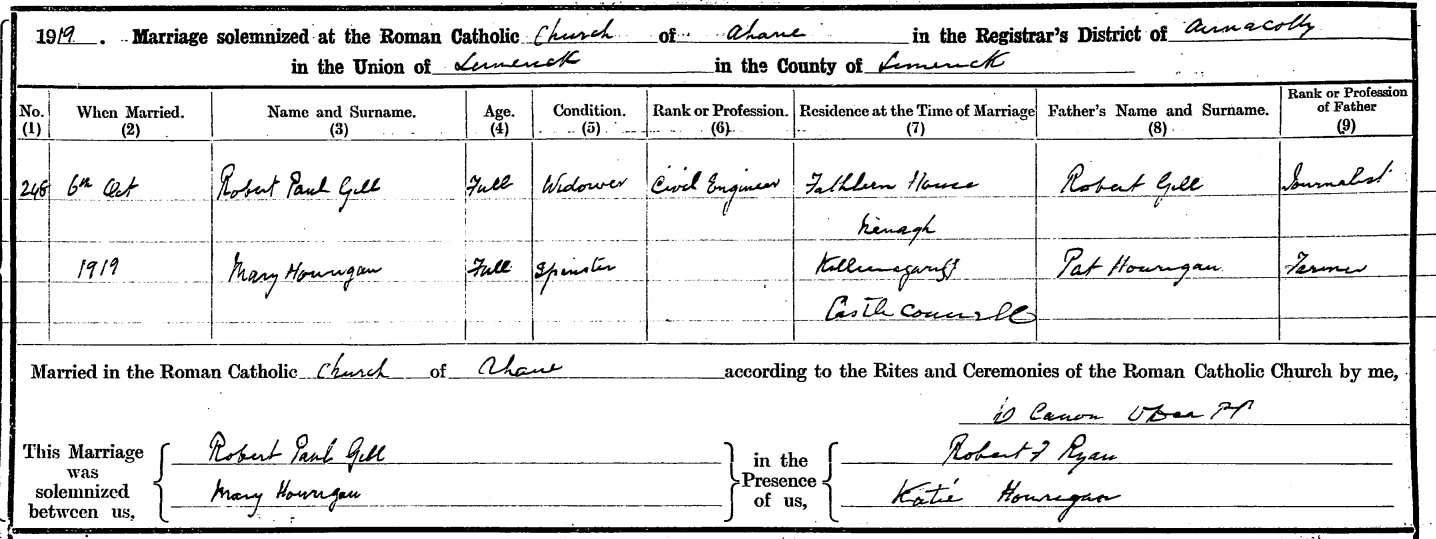 1919. Marriage solemnized at the Roman Catholic Church of Ahane in the Registrar's District of Annacotty
in the Union of Limerick in the County of Limerick
No. (1) When Married. (2) Name and Surname. (3) Age. (4) Condition. (5) Rank or Profession. (6) Residence at the Time of Marriage (7) Father's Name and Surname. (8) Rank or Profession of Father (9)
246 6th Oct Robert Paul Gill Full Widower Civil Engineer House Robert Gill Journalist
Nenagh
1919 Mary Hourigan Full Spinster Pat Hourigan Farmer
Castleconnell
Married in the Roman Catholic Church of Ahane according to the Rites and Ceremonies of the Roman Catholic Church by me,
Canon O'Dea PP
This Marriage was solemnized between us, Robert Paul Gill in the Presence of us, Robert F Ryan
Mary Hourigan Katie Hourigan